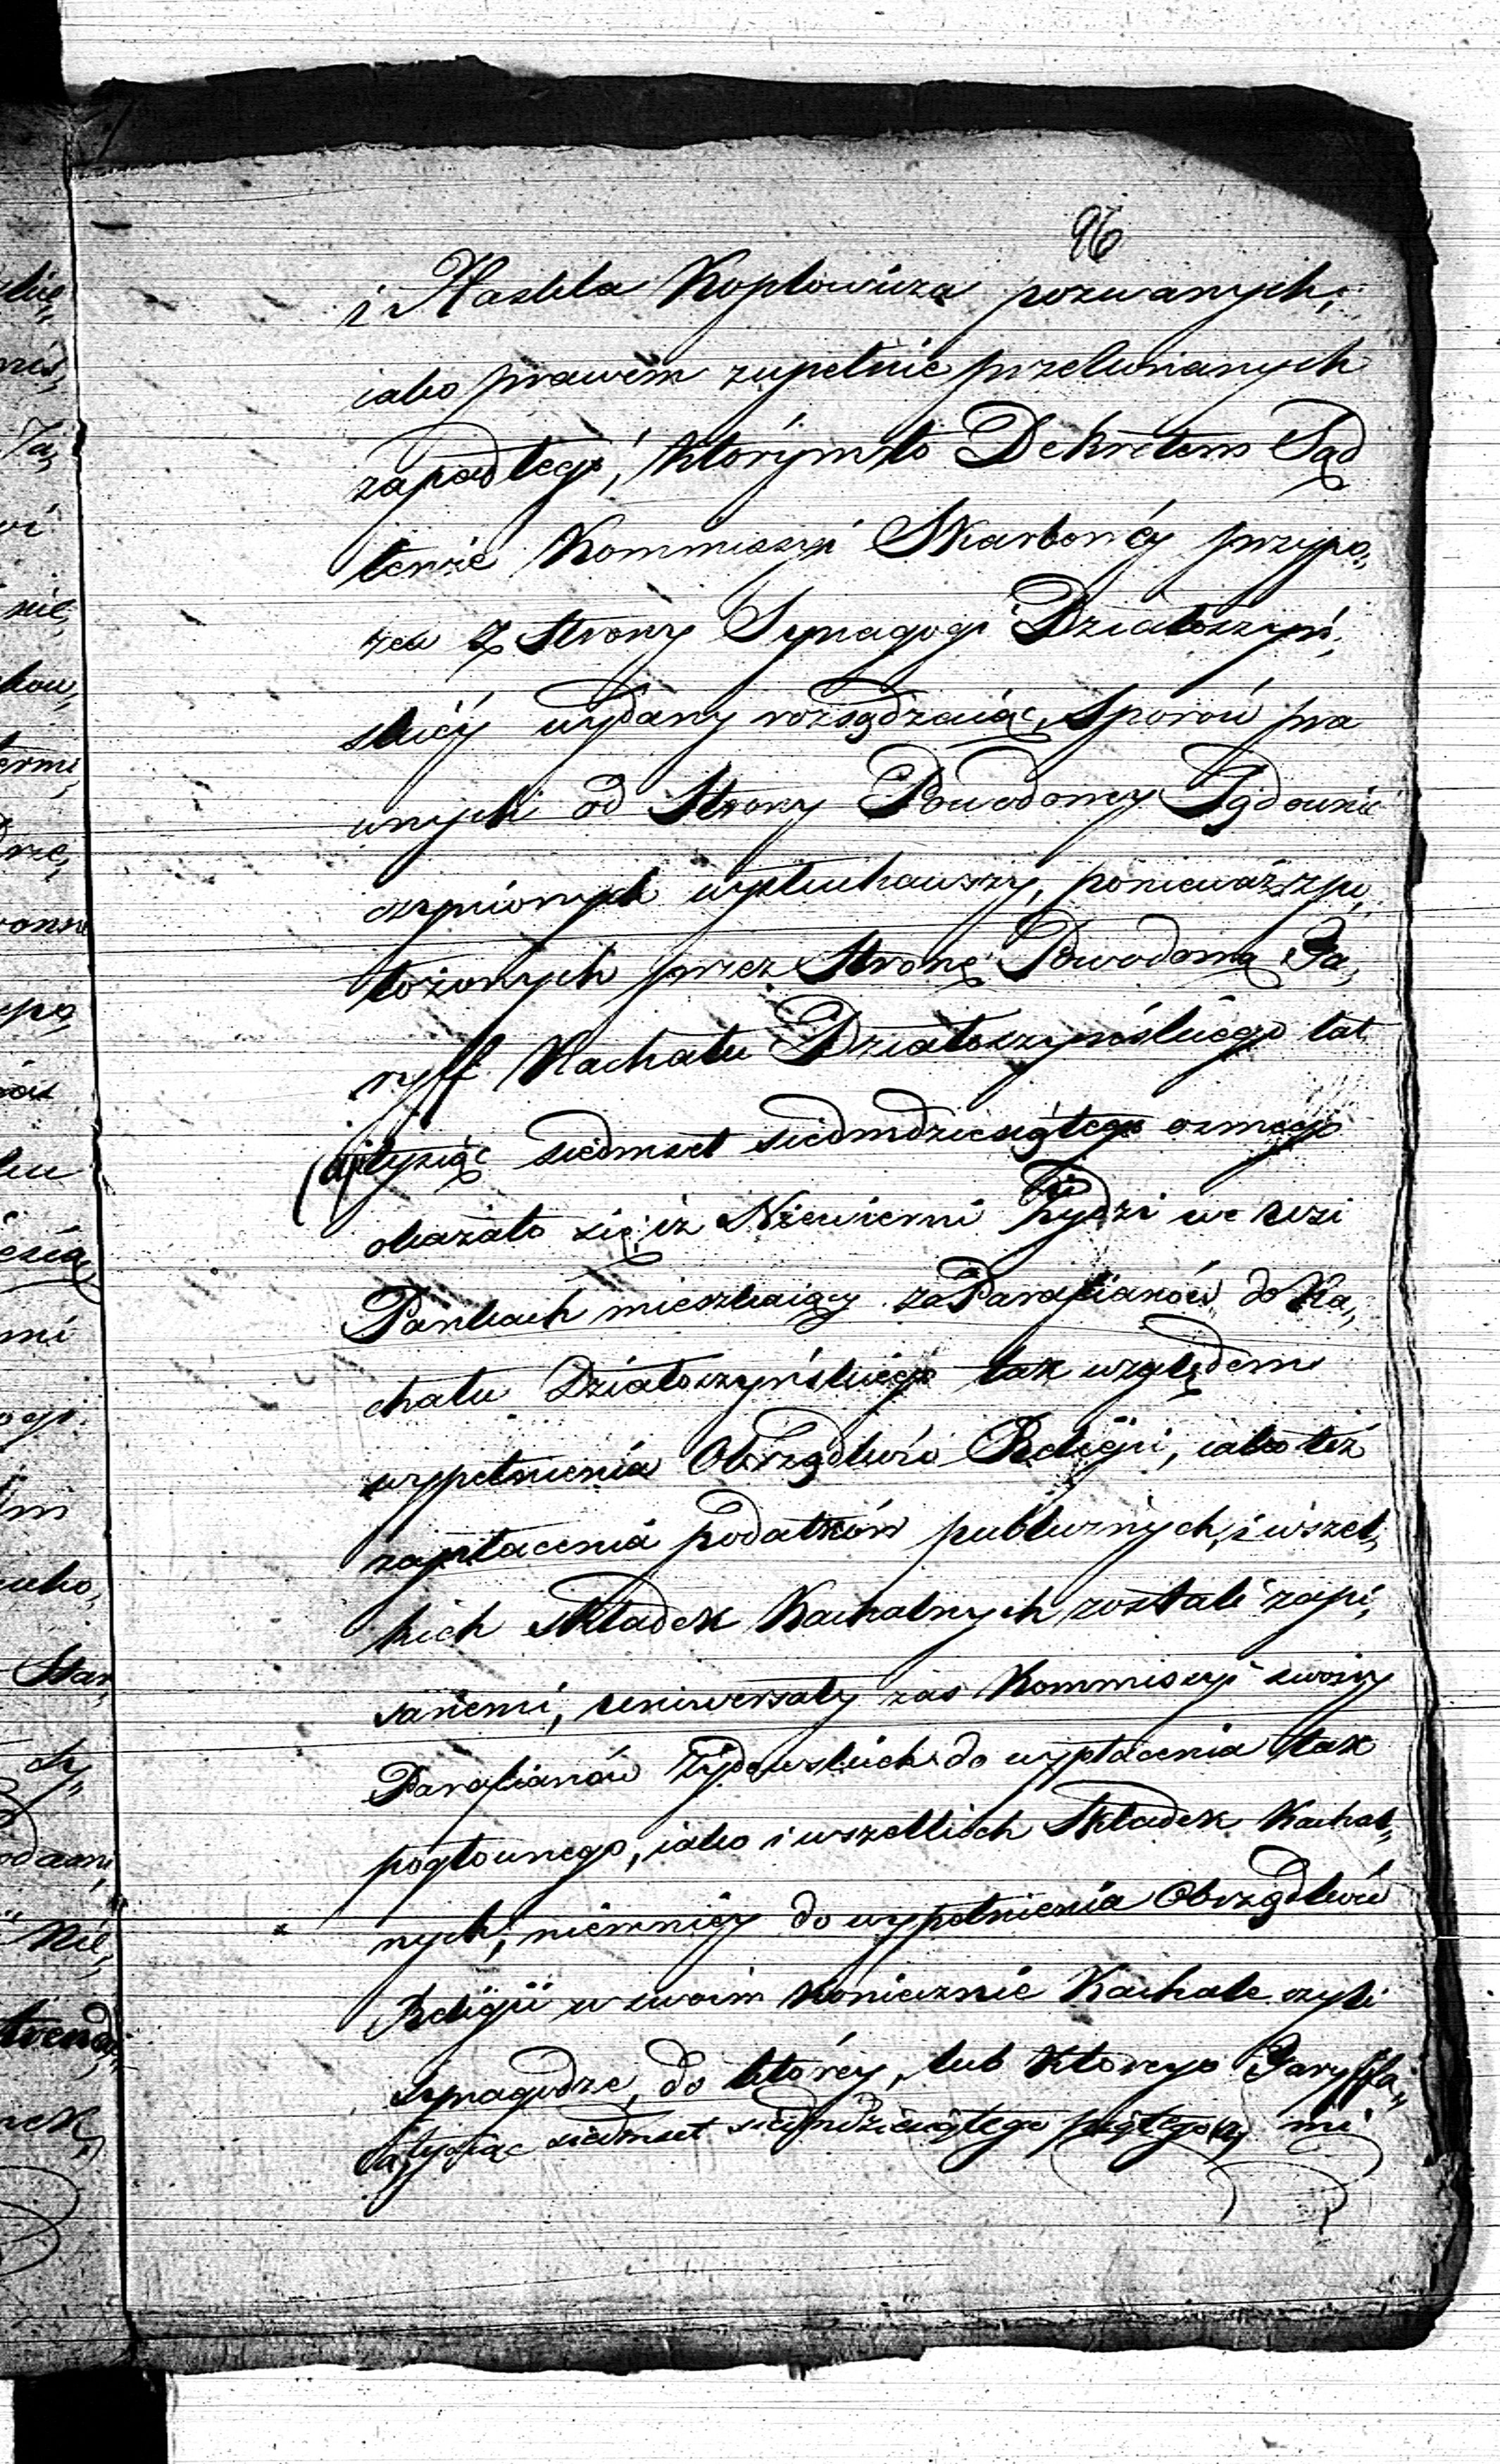 96
i Haskla Koplowicza pozwanych,
iako prawem zupełnie przekonanych
zapadłego, którymto Dekretem Sąd
tenże Kommiszyi Skarbowéy przypo„
zew z strony Synagogi Działoszyń„
skiéy wydany rozsądzaiąc, Sporów pra
wnych od Strony Powodowey Sądownie
czynionych wysłuchawszy, ponieważ z po„
łożonych przez Stronę Powodową Ta„
ryff Kachału Działoszyńskiego lat
(a) tysiąc siedmset siedmdziesiątego osmego
okazało się, iż Niewierni Żydzi we wsi
Pankach mieszkaiący za Parafianów do Ka„
chału Działoszyńskiego tak względem
wypełnienia Obrządków Religii, iako też
zapłacenia podatków publicznych, i wszel„
kich składek Kachalnych zostali zapi„
saniemi, uniwersały zas Kommisyi swoiey
Parafianów Żydowskich do wypłacenia tak
pogłownego, iako i wszelkich Składek Kachal„
nych, niemniéy do wypełnienia Obrządków
Religii w swoim koniecznie Kachale czyli
synagodze, do któréy, lub którego Taryffa„
(a) tysiąc siedmset siedmdziesiątego piątego (a) mi